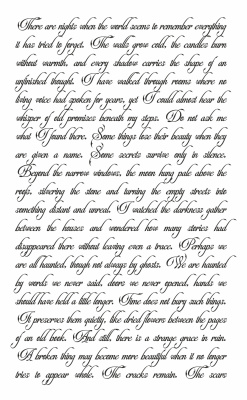 There are nights when the world seems to remember everything
it has tried to forget. The walls grow cold, the candles burn
without warmth, and every shadow carries the shape of an
unfinished thought. I have walked through rooms where no
living voice had spoken for years, yet I could almost hear the
whisper of old promises beneath my steps. Do not ask me
what I found there. Some things lose their beauty when they
are given a name. Some secrets survive only in silence.
Beyond the narrow windows, the moon hung pale above the
roofs, silvering the stone and turning the empty streets into
something distant and unreal. I watched the darkness gather
between the houses and wondered how many stories had
disappeared there without leaving even a trace. Perhaps we
are all haunted, though not always by ghosts. We are haunted
by words we never said, doors we never opened, hands we
should have held a little longer. Time does not bury such things.
It preserves them quietly, like dried flowers between the pages
of an old book. And still, there is a strange grace in ruin.
A broken thing may become more beautiful when it no longer
tries to appear whole. The cracks remain. The scars